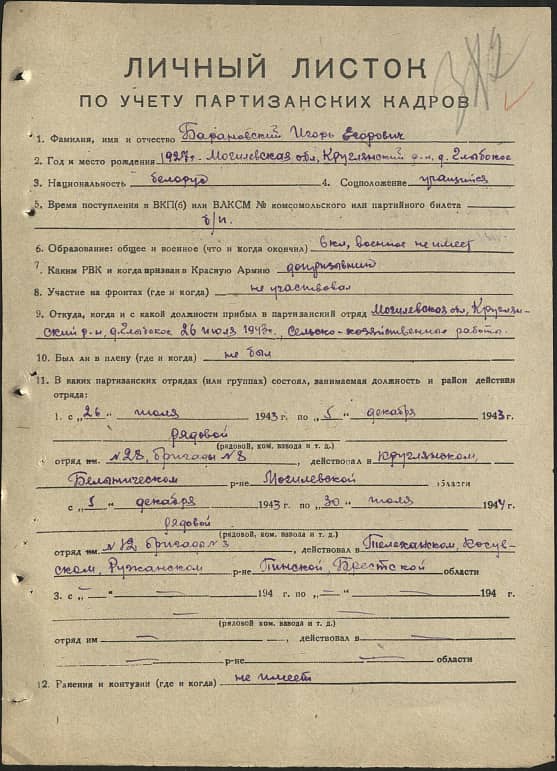 ЛИЧНЫЙ ЛИСТОК
ПО УЧЕТУ ПАРТИЗАНСКИХ КАДРОВ
1. Фамилия, имя и отчество Барановский Игорь Егорович
2. Год и место рождения 1927г. Могилевская обл, Круглянский р-н, д. Глыбокое
3. Национальность белорус 4. Соцположение учащийся
5. Время поступления в ВКП(б) или ВЛКСМ № комсомольского или партийного билета
б/п.
6. Образование: общее и военное (что и когда окончил) 6 кл, военное не имеет
7. Каким РВК и когда призван в Красную Армию допризывник
8. Участие на фронтах (где и когда) не участвовал
9. Откуда, когда и с какой должности прибыл в партизанский отряд Могилевская обл, Круглян-
ский р-н, д. Глыбокое 26 июля 1943г., сельско-хозяйственные работы.
10. Был ли в плену (где и когда) не был
11. В каких партизанских отрядах (или группах) состоял, занимаемая должность и район действия
отряда:
1. с „26" июля 1943 г. по „5" декабря 1943 г.
рядовой
(рядовой, ком. взвода и т. д.)
отряд им. №28, бригады №8, действовал в Круглянском,
Белыничском р-не Могилевской области
с „5" декабря 1943 г. по „30" июля 1944 г.
рядовой
(рядовой, ком. взвода и т. д.)
отряд им. №12 бригады №3, действовал в Телеханском, Косув-
ском, Ружанском р-не Пинской, Брестской области
3. с „—" — 194 г. по „—" — 194 г.
(рядовой, ком. взвода и т. д.)
отряд им — , действовал в —
— р-не — области
12. Ранения и контузии (где и когда) не имеет